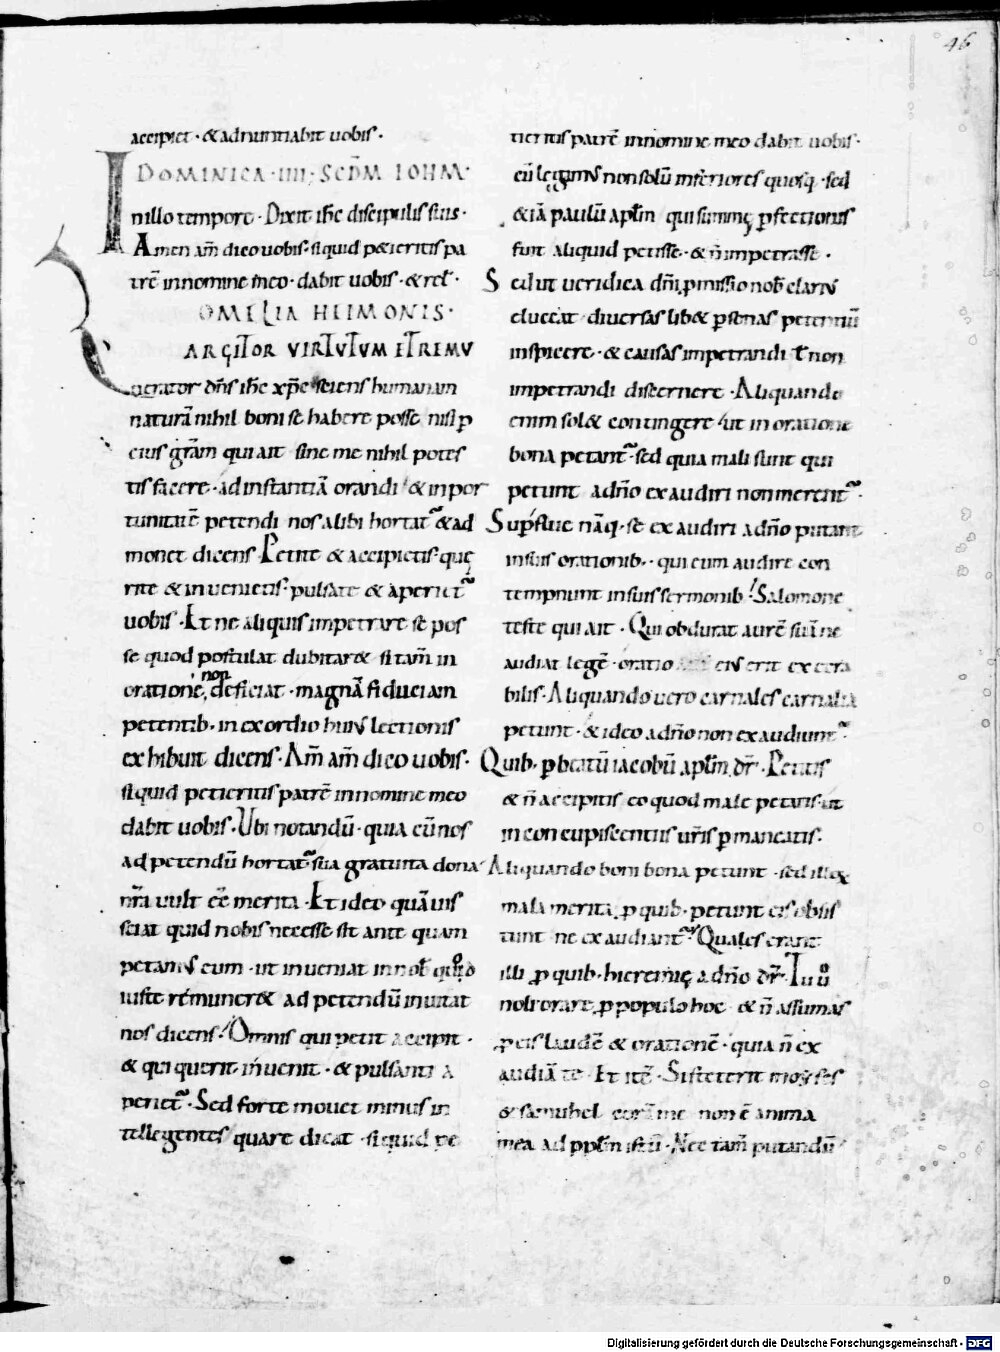 46
accipiet · & adnuntiabit uobis ·
DOMINICA · IIII · SCDM IOHM ·
Inillo tempore · Dixit ihc discipulis suis ·
Amen am̅ dico uobis · siquid p&ieritis pa
tre̅ innomine meo · dabit uobis · & rel̅ ·
OMELIA HEIMONIS ·
LARGITOR VIRTUTUM ET REMU
nerator dn̅s ihc xp̅c sciens humanam
natura̅ nihil boni se habere posse nisi p̲
eius gra̅m qui ait sine me nihil potes
tis facere · ad instantia̅ orandi & inpor
tunitate̅ petendi nos alibi hortat᷑ & ad
monet dicens · Petite & accipietis · quę
rite & inuenietis · pulsate & aperiet᷑
uobis · Et ne aliquis impetrare se pos
se quod postulat dubitar& si tam̅ in
oratione, non deficiat · magna̅ fiduciam
petentib · in exordio huius lectionis
exhibuit dicens · Am̅ am̅ dico uobis ·
siquid petieritis patre̅ innomine meo
dabit uobis · Ubi notandu̅ · quia cu̅ nos
ad petendu̅ hortat᷑ sua gratuita dona
nr̅a uult ee̅ merita · Et ideo qua̅uis
sciat quid nobis necesse sit ante quam
petamus eum · ut inueniat in nob̅ quod
iuste remuner& ad petendu̅ inuitat
nos dicens · Omnis qui petit accipit ·
& qui querit inuenit · & pulsanti a
periet᷑ · Sed forte mouet minus in
tellegentes quare dicat · siquid pe
tieritis patre̅ innomine meo dabit uobis ·
cu̅ legamus non solu̅ inferiores quosq · sed
& ia̅ paulu̅ apl̅m qui summę p̲fectionis
fuit aliquid petisse · & n̅ impetrasse ·
Sed ut ueridica dn̅i p̲missio nob̅ clarius
eluceat diuersas lib& p̲sonas petentiu̅
inspicere · & causas impetrandi ł non
impetrandi discernere · Aliquando
enim sol& contingere ut in oratione
bona petant᷑ · sed quia mali sunt qui
petunt a dn̅o exaudiri non merent᷑ ·
Supflue na̅q · se exaudiri a dn̅o putant
insuis orationib · qui eum audire con
tempnunt insuis sermonib · Salomone
teste qui ait · Qui obdurat aure̅ sua̅ ne
audiat lege̅ · oratio eius erit execra
bilis · Aliquando uero carnales carnalia
petunt · & ideo a dn̅o non exaudiunt᷑ ·
Quib · p̲ beatu̅ iacobu̅ apl̅m dr̅ · Petitis
& n̅ accipitis eo quod male petatis · ut
in concupiscentiis ur̅is p̲maneatis ·
Aliquando boni bona petunt · sed illoꝝ
mala merita p̲ quib · petunt eis obsis
tunt ne exaudiant᷑ · Quales erant
illi p̲ quib · hieremię a dn̅o dr̅ · Tu
noli orare p̲ populo hoc & n̅ assumas
p̲ eis laude̅ & oratione̅ · quia n̅ ex
audia̅ te · Et ite̅ · Si steterit moyses
& samuhel cora̅ me non e̅ anima
mea ad pp̅lm istu̅ · Nec tam̅ putandu̅
Digitalisierung gefördert durch die Deutsche Forschungsgemeinschaft - DFG